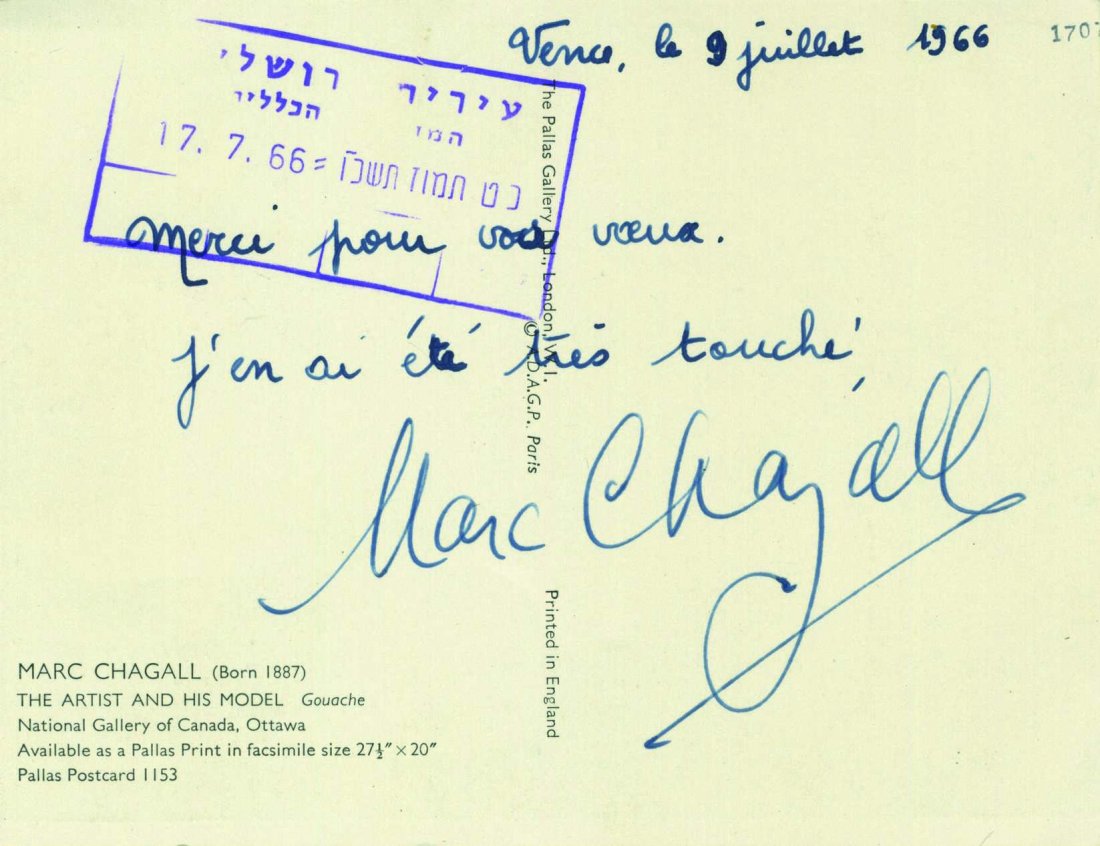 Vence, le 9 juillet 1966
1707
17. 7. 66 = כט תמוז תשכ"ו
Merci pour vos vœux.
J'en ai été très touché
Marc Chagall
The Pallas Gallery Ltd., London, W.1.
© A.D.A.G.P., Paris
Printed in England
MARC CHAGALL (Born 1887)
THE ARTIST AND HIS MODEL Gouache
National Gallery of Canada, Ottawa
Available as a Pallas Print in facsimile size 27½″ × 20″
Pallas Postcard 1153